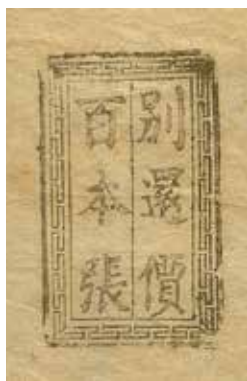 別還價
百本張